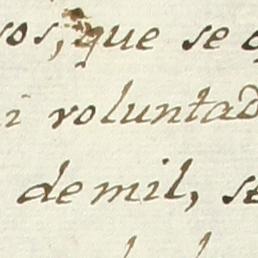 os, que se
i voluntad
de mil, se